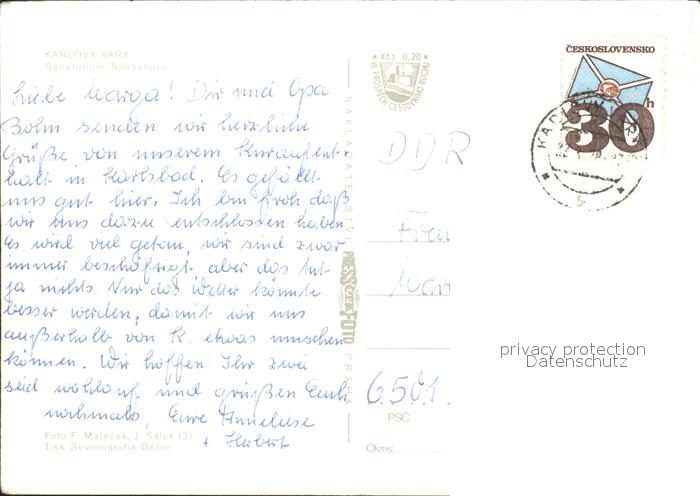 KARLOVY VARY
Sanatorium Sanssouci
Liebe Marga! Dir und Opa
Bohm senden wir herzliche
Grüße von unserem Kuraufent-
halt in Karlsbad. Es gefällt
uns gut hier. Ich bin froh daß
wir uns dazu entschlossen haben.
Es wird viel getan, wir sind zwar
immer beschäftigt, aber das tut
ja nichts. Nur das Wetter könnte
besser werden, damit wir uns
außerhalb von K. etwas umsehen
können. Wir hoffen Ihr zwei
seid wohlauf und grüßen Euch
nochmals, Eure Anneliese
+ Herbert
Foto F. Maleček, J. Šálek (3)
Tisk Severografia Děčín
NAKLADATELSTVÍ
PRESSFOTO
PRAHA
Kčs 0,20
VE PROSPĚCH CESTOVNÍHO RUCHU
ČESKOSLOVENSKO
30 h
DDR
Frau
Mar
6501.
PSČ
Okres:
privacy protection
Datenschutz